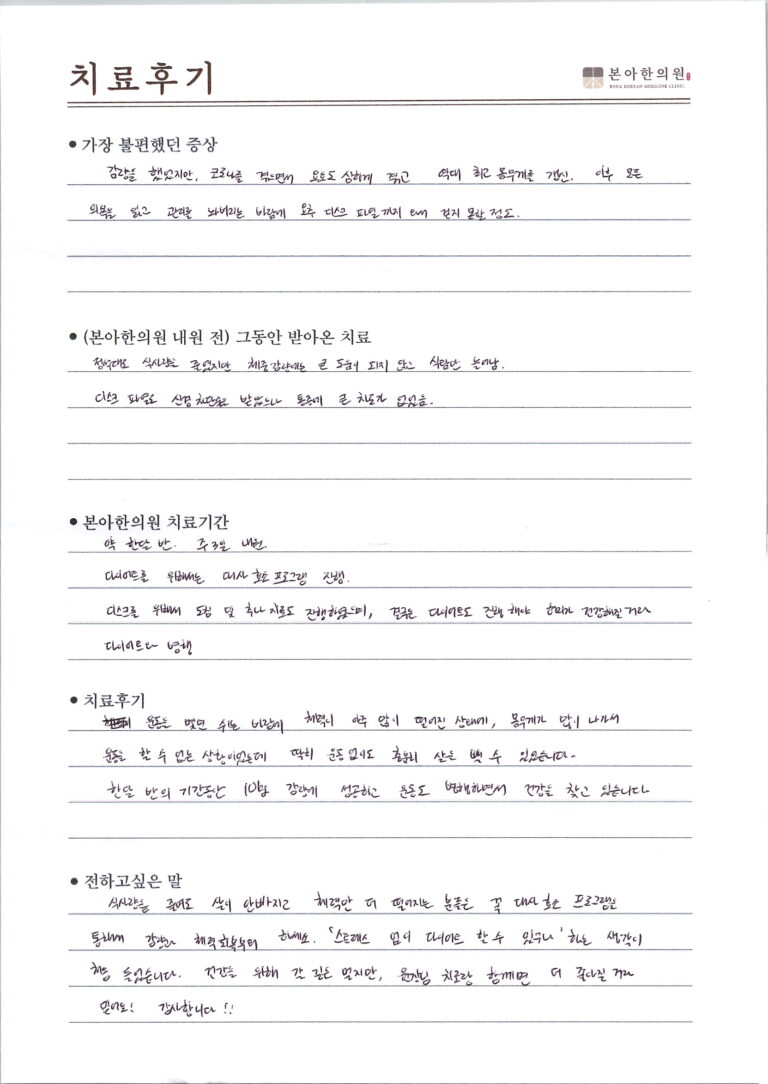 치료후기
본아한의원
BONA KOREAN MEDICINE CLINIC
• 가장 불편했던 증상
감량을 했었지만, 코로나를 겪으면서 요요도 심하게 겪고 역대 최고 몸무게를 갱신. 이후 모든
의욕을 잃고 관리를 놔버리는 바람에 요추 디스크 파열까지 와서 걷지 못할 정도.
• (본아한의원 내원 전) 그동안 받아온 치료
절식대로 식사량을 줄였지만 체중감량에는 큰 도움이 되지 않고 식탐만 늘어남.
디스크 파열로 신경차단술도 받았으나 통증에 큰 차도가 없었음.
• 본아한의원 치료기간
약 한달 반. 주 3일 내원.
다이어트를 위해서는 대사 효소 프로그램 진행.
디스크를 위해서 도침 및 추나 치료도 진행하였으며, 결국은 다이어트도 진행해야 허리가 건강해질거라
다이어트와 병행
• 치료후기
운동을 몇년 쉬는 바람에 체력이 아주 많이 떨어진 상태에, 몸무게가 많이 나가서
운동을 할 수 없는 상황이었는데 딱히 운동 없이도 충분히 살을 뺄 수 있었습니다.
한달 반의 기간동안 10kg 감량에 성공하고 운동도 병행하면서 건강을 찾고 있습니다
• 전하고싶은 말
식사량을 줄여도 살이 안빠지고 체력만 더 떨어지는 분들은 꼭 대사 효소 프로그램을
통해서 감량과 체력회복부터 하세요. '스트레스 없이 다이어트 할 수 있구나' 하는 생각이
처음 들었습니다. 건강을 위해 갈 길은 멀지만, 원장님 치료랑 함께면 더 좋아질 거라
믿어요! 감사합니다!!